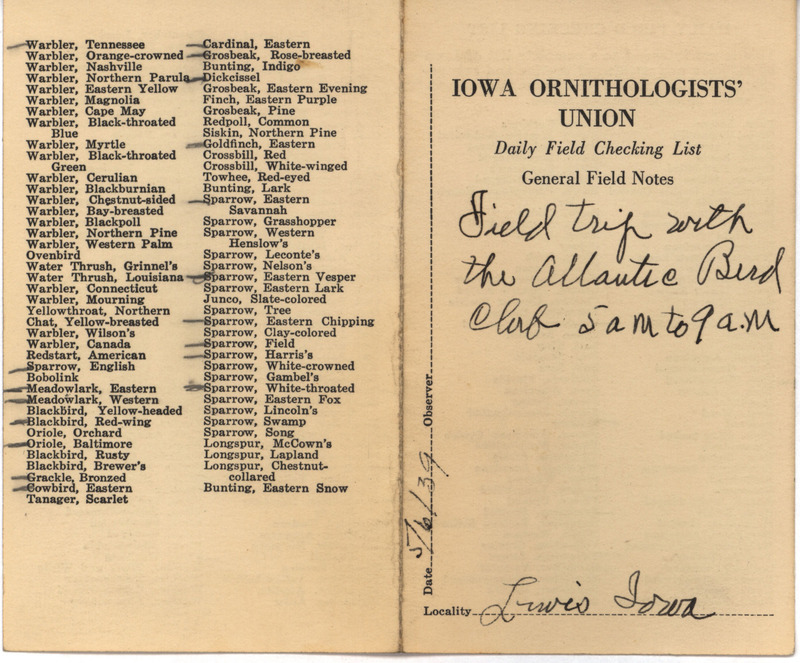 Warbler, Tennessee
Warbler, Orange-crowned
Warbler, Nashville
Warbler, Northern Parula
Warbler, Eastern Yellow
Warbler, Magnolia
Warbler, Cape May
Warbler, Black-throated
Blue
Warbler, Myrtle
Warbler, Black-throated
Green
Warbler, Cerulian
Warbler, Blackburnian
Warbler, Chestnut-sided
Warbler, Bay-breasted
Warbler, Blackpoll
Warbler, Northern Pine
Warbler, Western Palm
Ovenbird
Water Thrush, Grinnel's
Water Thrush, Louisiana
Warbler, Connecticut
Warbler, Mourning
Yellowthroat, Northern
Chat, Yellow-breasted
Warbler, Wilson's
Warbler, Canada
Redstart, American
Sparrow, English
Bobolink
Meadowlark, Eastern
Meadowlark, Western
Blackbird, Yellow-headed
Blackbird, Red-wing
Oriole, Orchard
Oriole, Baltimore
Blackbird, Rusty
Blackbird, Brewer's
Grackle, Bronzed
Cowbird, Eastern
Tanager, Scarlet
Cardinal, Eastern
Grosbeak, Rose-breasted
Bunting, Indigo
Dickcissel
Grosbeak, Eastern Evening
Finch, Eastern Purple
Grosbeak, Pine
Redpoll, Common
Siskin, Northern Pine
Goldfinch, Eastern
Crossbill, Red
Crossbill, White-winged
Towhee, Red-eyed
Bunting, Lark
Sparrow, Eastern
Savannah
Sparrow, Grasshopper
Sparrow, Western
Henslow's
Sparrow, Leconte's
Sparrow, Nelson's
Sparrow, Eastern Vesper
Sparrow, Eastern Lark
Junco, Slate-colored
Sparrow, Tree
Sparrow, Eastern Chipping
Sparrow, Clay-colored
Sparrow, Field
Sparrow, Harris's
Sparrow, White-crowned
Sparrow, Gambel's
Sparrow, White-throated
Sparrow, Eastern Fox
Sparrow, Lincoln's
Sparrow, Swamp
Sparrow, Song
Longspur, McCown's
Longspur, Lapland
Longspur, Chestnut-
collared
Bunting, Eastern Snow
Date 5/6/39 Observer
IOWA ORNITHOLOGISTS'
UNION
Daily Field Checking List
General Field Notes
Field trip with
the Atlantic Bird
Club 5 am to 9 a.m
Locality Lewis Iowa